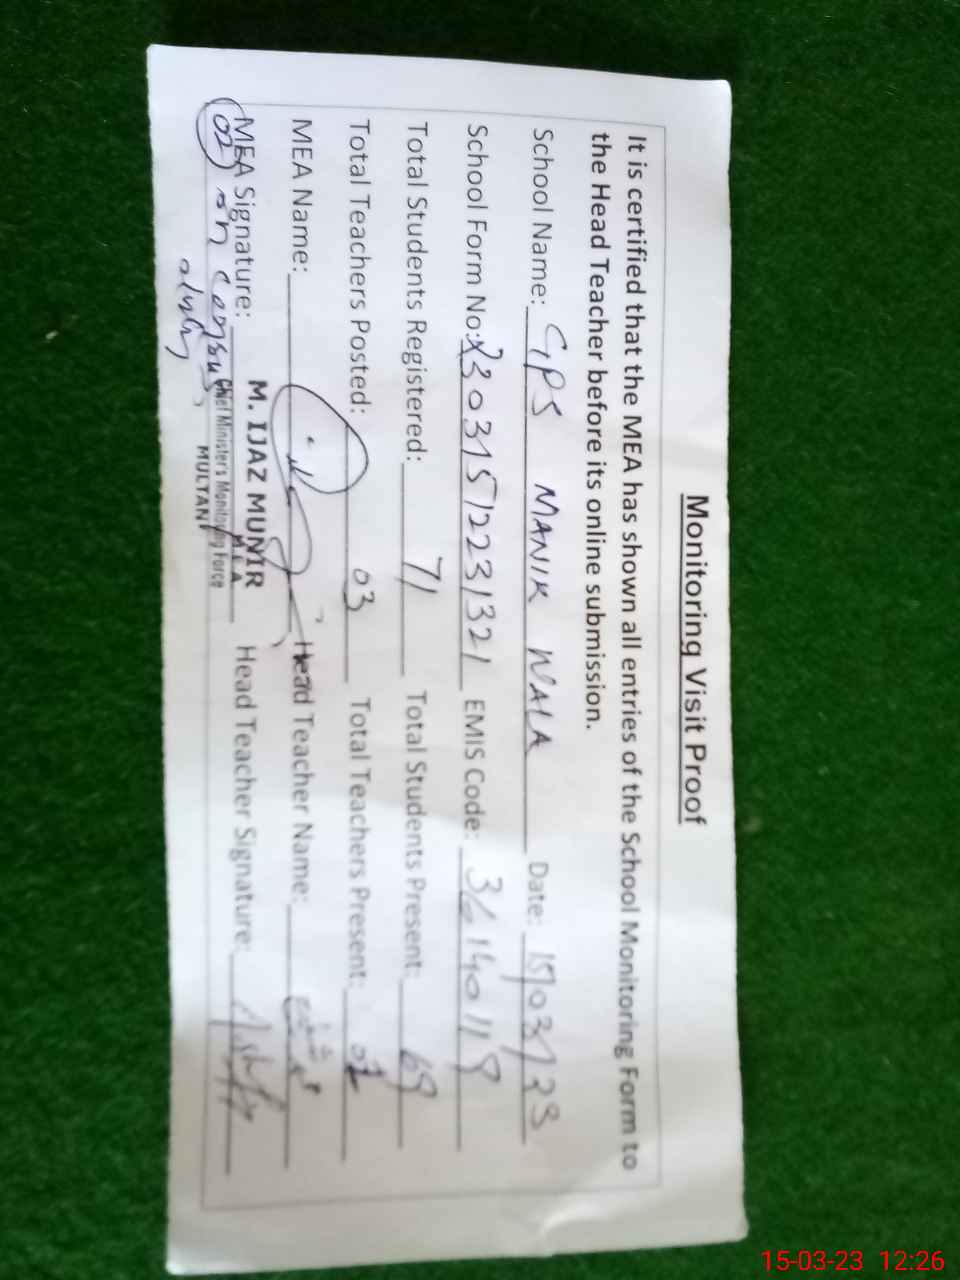 Monitoring Visit Proof
It is certified that the MEA has shown all entries of the School Monitoring Form to
the Head Teacher before its online submission.
School Name: GPS MANIK WALA Date: 15/03/23
School Form No: 23031512231321 EMIS Code: 36140119
Total Students Registered: 71 Total Students Present: 69
Total Teachers Posted: 03 Total Teachers Present:
MEA Name: Head Teacher Name:
M. IJAZ MUNIR
MEA Signature: M.E.A Head Teacher Signature:
Chief Minister's Monitoring Force
MULTAN
02 on census
duty
15-03-23 12:26